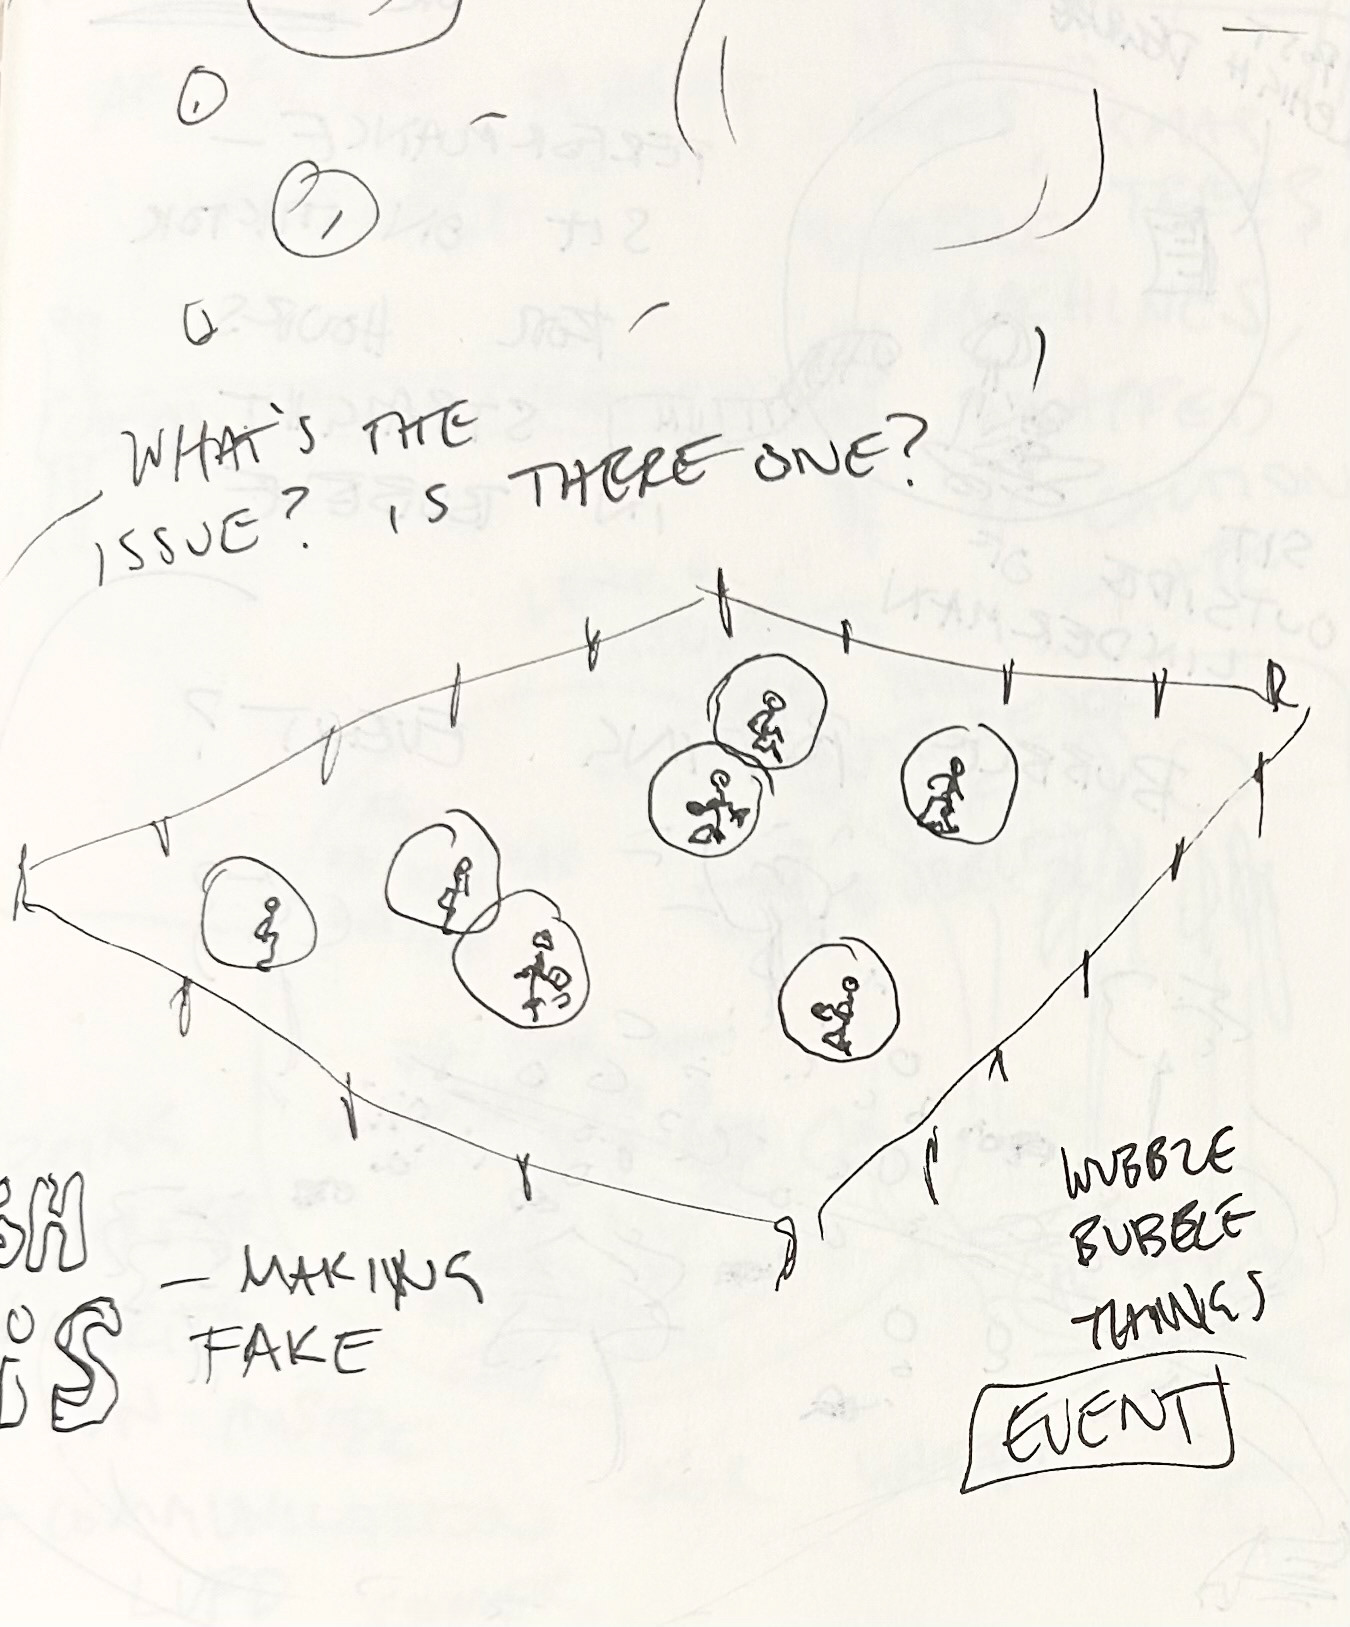 WHAT'S THE
ISSUE? IS THERE ONE?
– MAKING
FAKE
WUBBLE
BUBBLE
EVENT